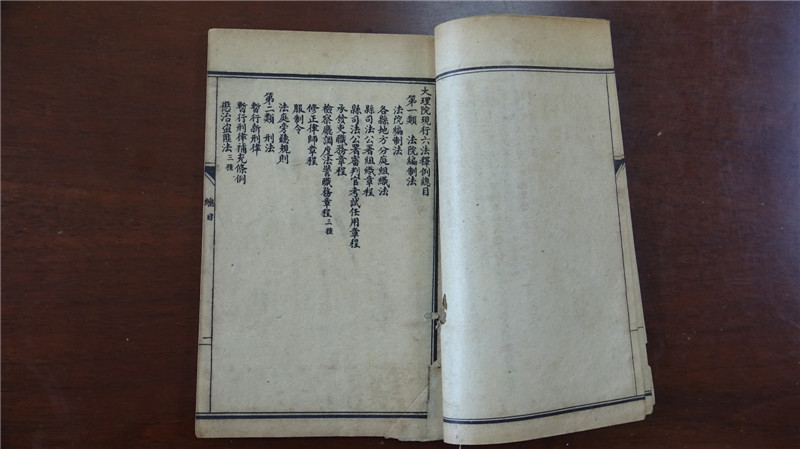 大理院現行六法釋例總目
第一類 法院編制法
法院編制法
各縣地方分庭組織法
縣司法公署組織章程
縣司法公署審判官考試任用章程
承發吏職務章程
檢察廳調度法警職務章程三種
修正律師章程
服制令
法庭旁聽規則
第二類 刑法
暫行新刑律
暫行刑律補充條例
懲治盜匪法三種
總目
一